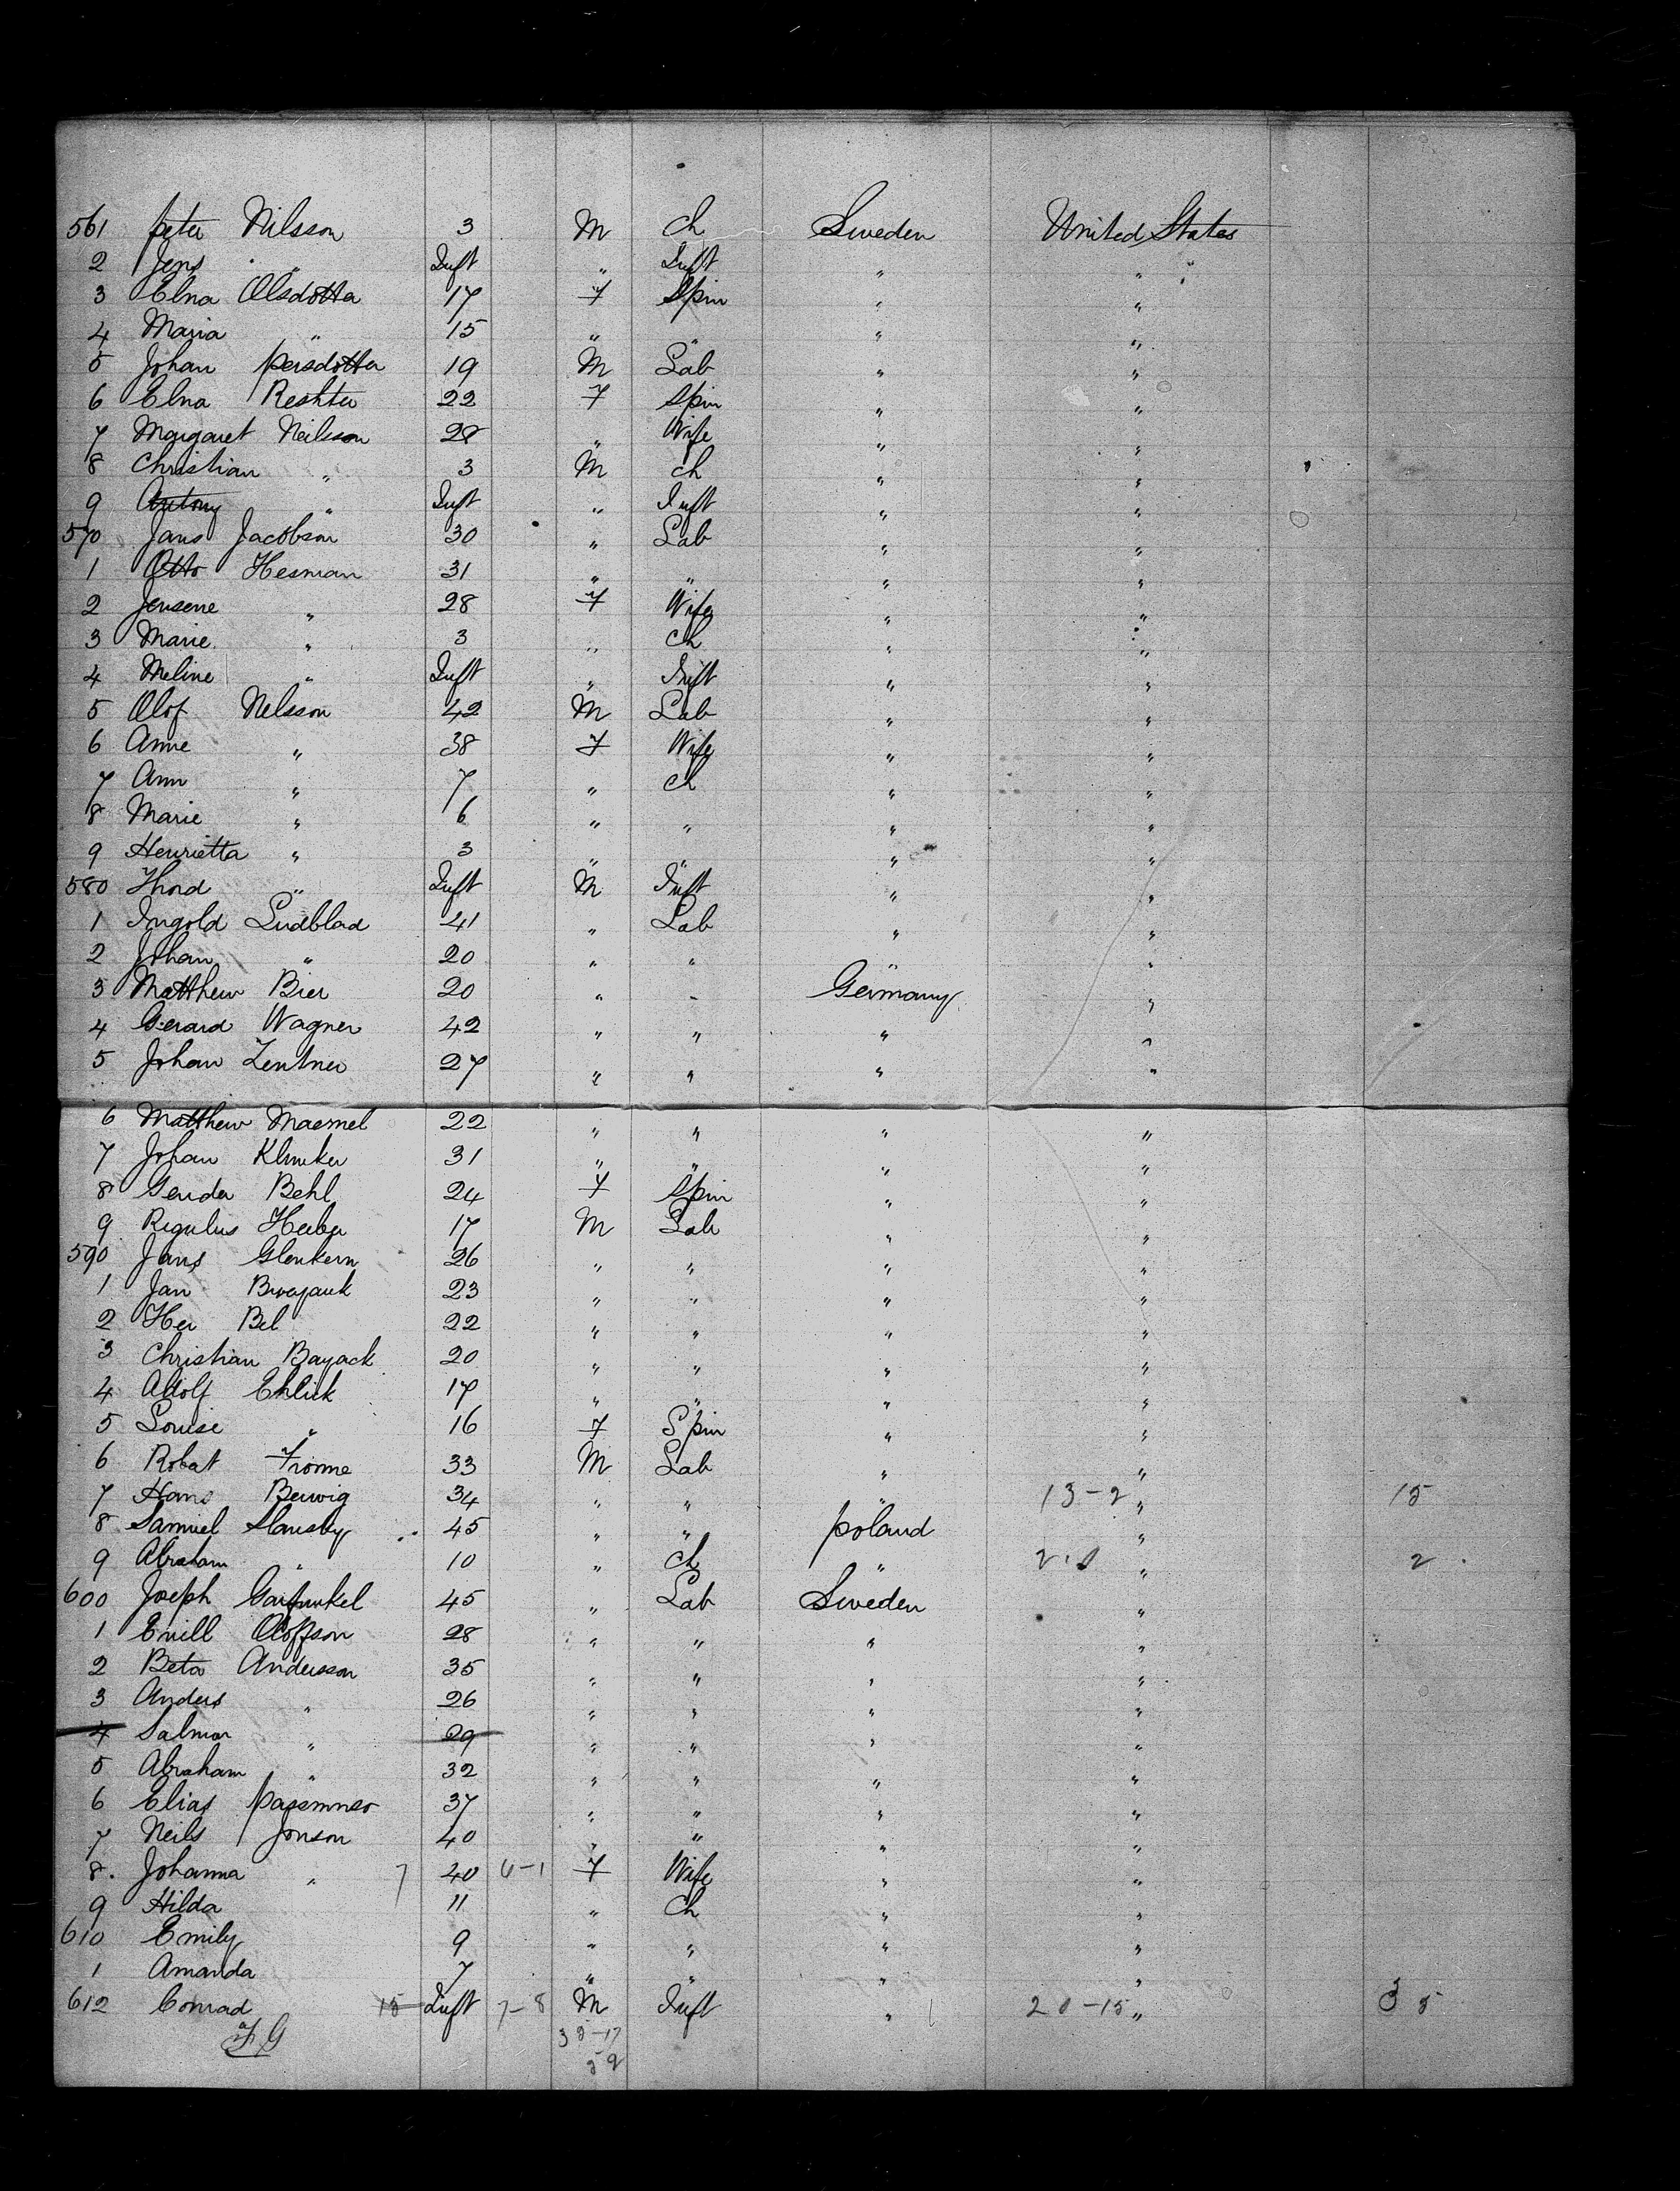 561 Peter Nilsson 3 M Ch Sweden United States
2 Jens " Inft " Inft " "
3 Elna Olsdotta 17 F Spin " "
4 Maria " 15 " " " "
5 Johan Persdotta 19 M Lab " "
6 Elna Reshter 22 F Spin " "
7 Margaret Neilsson 28 " Wife " "
8 Christian " 3 M Ch " "
9 Antony " Inft " Inft " "
570 Jans Jacobson 30 " Lab " "
1 Otto Hesman 31 " " " "
2 Jensene " 28 F Wife " "
3 Marie " 3 " Ch " "
4 Meline " Inft " Inft " "
5 Olof Nelsson 42 M Lab " "
6 Anne " 38 F Wife " "
7 Ann " 7 " Ch " "
8 Marie " 6 " " " "
9 Henrietta " 3 " " " "
580 Thord " Inft M Inft " "
1 Ingold Ludblad 41 " Lab " "
2 Johan " 20 " " " "
3 Matthew Bier 20 " " Germany "
4 Gerard Wagner 42 " " " "
5 Johan Zentner 27 " " " "
6 Matthew Maesmel 22 " " " "
7 Johan Klinker 31 " " " "
8 Gerida Behl 24 F Spin " "
9 Regulus Heeber 17 M Lab " "
590 Jans Glenkern 26 " " " "
1 Jan 23 " " " "
2 Her Bel 22 " " " "
3 Christian Bayack 20 " " " "
4 Adolf Ehlick 17 " " " "
5 Louise " 16 F Spin " "
6 Robat Fromme 33 M Lab " "
7 Hans Berwig 34 " " " 13-2 " 15
8 Samuel Slansby 45 " " Poland "
9 Abraham " 10 " Ch " " 2
600 Joseph Garfunkel 45 " Lab Sweden "
1 Emill Oloffson 28 " " " "
2 Beta Andersson 35 " " " "
3 Anders " 26 " " " "
4 Salmar " 29 " " " "
5 Abraham " 32 " " " "
6 Elias 37 " " " "
7 Neils Jonson 40 " " " "
8. Johanna " 7 40 6-1 F Wife " "
9 Hilda 11 " Ch " "
610 Emily 9 " " " "
1 Amanda 7 " " " "
612 Conrad 15 Inft 7-8 M Inft " 20-15 " 35
FG